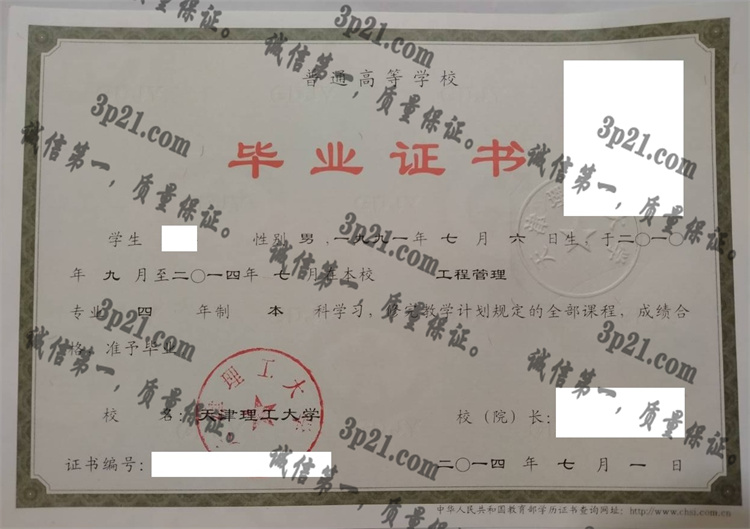 普通高等学校
毕业证书
学生 性别 男 ,一九九一年 七 月 六 日生,于二〇一〇
年 九 月至二〇一四年 七 月在本校 工程管理
专业 四 年制 本 科学习,修完教学计划规定的全部课程,成绩合
格,准予毕业
校 名:天津理工大学 校(院)长:
证书编号: 二〇一四 年 七 月 一 日
中华人民共和国教育部学历证书查询网址:http://www.chsi.com.cn
3p21.com
诚信第一,质量保证。
3p21.com
诚信第一,质量保证。
3p21.com
诚信第一,质量保证。
3p21.com
诚信第一,质量保证。
3p21.com
诚信第一,质量保证。
3p21.com
诚信第一,质量保证。
3p21.com
诚信第一,质量保证。